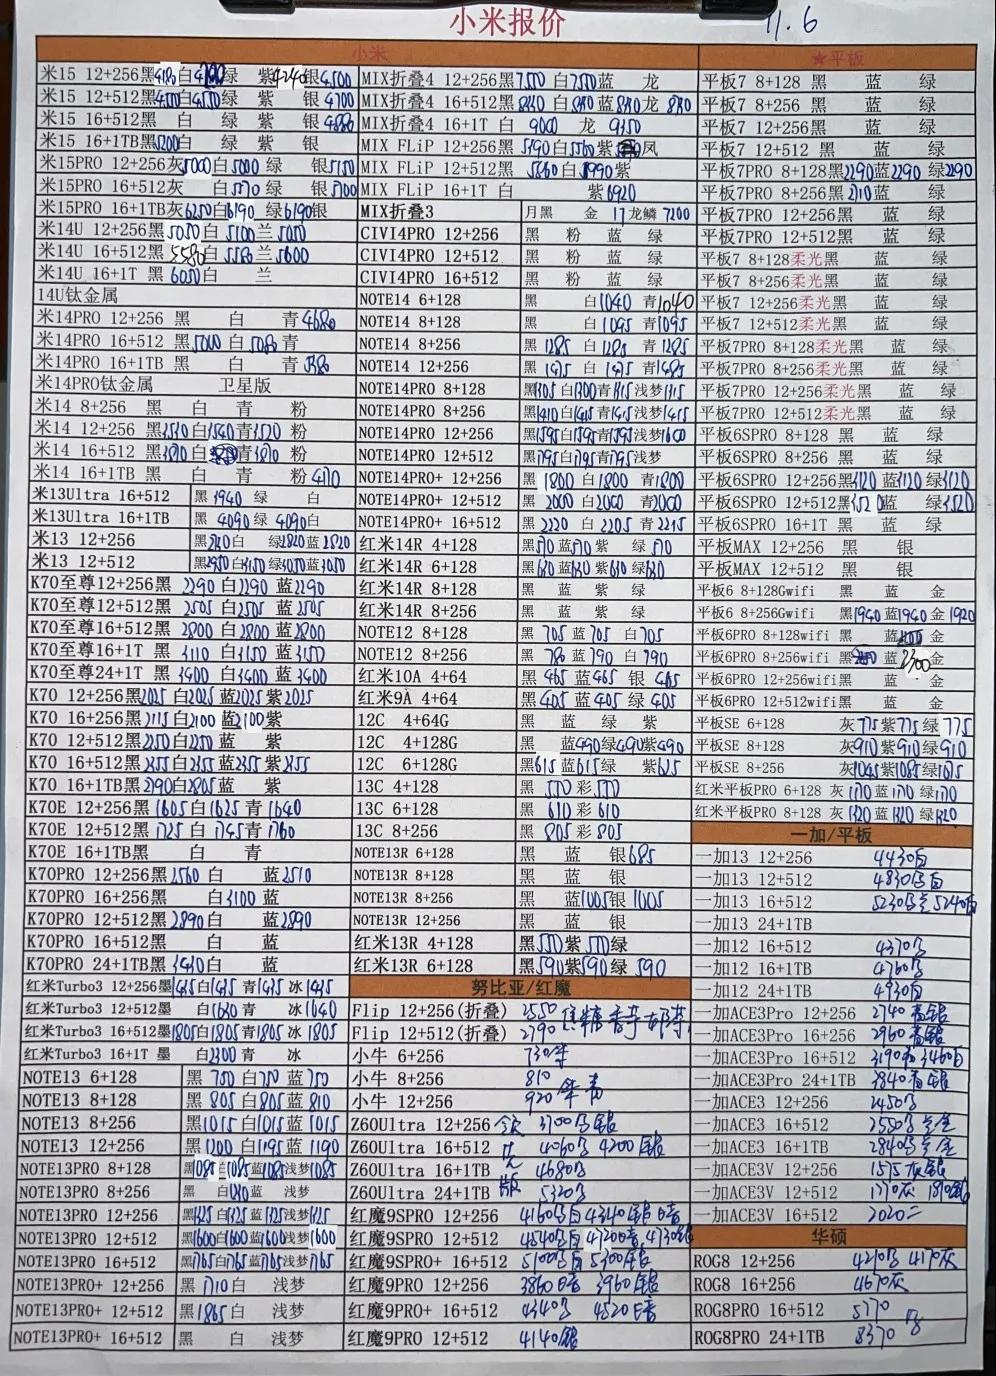 小米报价 11.6
小米
米15 12+256黑4180白 绿 紫4240银4500
米15 12+512黑4550白4550绿 紫 银4700
米15 16+512黑 白 绿 紫 银4880
米15 16+1TB黑5200白 绿 紫 银
米15PRO 12+256灰5000白5000 绿 银5150
米15PRO 16+512灰 白5570 绿 银5700
米15PRO 16+1TB灰6250白6190 绿6190银
米14U 12+256黑5050白5100兰5050
米14U 16+512黑5580白5580兰5600
米14U 16+1T 黑6050白 兰
14U钛金属
米14PRO 12+256 黑 白 青4680
米14PRO 16+512 黑5000白5080青
米14PRO 16+1TB 黑 白 青
米14PRO钛金属 卫星版
米14 8+256 黑 白 青 粉
米14 12+256 黑3510白3540青3520 粉
米14 16+512 黑3870白 青3870 粉
米14 16+1TB 黑 白 青 粉4170
米13Ultra 16+512 黑 绿 白
米13Ultra 16+1TB 黑 4090绿 4090白
米13 12+256 黑 白 绿2820蓝2820
米13 12+512 黑2950白3150绿3050蓝3050
K70至尊12+256黑 2290 白2290 蓝2290
K70至尊12+512黑 2505 白2505 蓝2505
K70至尊16+512黑 2800 白2800 蓝2800
K70至尊16+1T 黑 3110 白3150 蓝3150
K70至尊24+1T 黑 3400 白3400 蓝3400
K70 12+256黑2025白2025蓝2025紫2025
K70 16+256黑2115白2100蓝2100紫
K70 12+512黑2250白2250 蓝 紫
K70 16+512黑2355白2355蓝2355紫2355
K70 16+1TB黑2790白2805蓝 紫
K70E 12+256黑1605白1625青1640
K70E 12+512黑1725白1745青1760
K70E 16+1TB黑 白 青
K70PRO 12+256黑2560白 蓝2510
K70PRO 16+256黑 白3100蓝
K70PRO 12+512黑2890白 蓝2890
K70PRO 16+512黑 白 蓝
K70PRO 24+1TB黑3430白 蓝
红米Turbo3 12+256墨1435白1435青1435冰1435
红米Turbo3 12+512墨 白1630 青 冰1640
红米Turbo3 16+512墨1805白1805青1805冰1805
红米Turbo3 16+1T 墨 白2300青 冰
NOTE13 6+128 黑 750白750蓝750
NOTE13 8+128 黑 805白805蓝810
NOTE13 8+256 黑1015白1015蓝1015
NOTE13 12+256 黑1200白1195蓝1190
NOTE13PRO 8+128 黑1085白1085蓝1085浅梦1085
NOTE13PRO 8+256 黑 白 蓝 浅梦
NOTE13PRO 12+256 黑1325白1325蓝1325浅梦1325
NOTE13PRO 12+512 黑1600白1600蓝1600浅梦1600
NOTE13PRO 16+512 黑1765白1765蓝1765浅梦1765
NOTE13PRO+ 12+256 黑1710白 浅梦
NOTE13PRO+ 12+512 黑1865白 浅梦
NOTE13PRO+ 16+512 黑 白 浅梦
MIX折叠4 12+256黑7550白7550蓝 龙
MIX折叠4 16+512黑 白 蓝 龙
MIX折叠4 16+1T 白 9000 龙 9350
MIX FLiP 12+256黑5190白5560紫 凤
MIX FLiP 12+512黑5860白5990紫
MIX FLiP 16+1T 白 紫6920
MIX折叠3 月黑 金 1T龙鳞7200
CIVI4PRO 12+256 黑 粉 蓝 绿
CIVI4PRO 12+512 黑 粉 蓝 绿
CIVI4PRO 16+512 黑 粉 蓝 绿
NOTE14 6+128 黑 白1040 青1040
NOTE14 8+128 黑 白1095 青1095
NOTE14 8+256 黑1285白1285 青1285
NOTE14 12+256 黑1475白1475 青1485
NOTE14PRO 8+128 黑1305白1300青1315浅梦1315
NOTE14PRO 8+256 黑1410白1415青1415浅梦1415
NOTE14PRO 12+256 黑1595白1595青1595浅梦1600
NOTE14PRO 12+512 黑1795白1795青1795浅梦
NOTE14PRO+ 12+256 黑1800白1800 青1800
NOTE14PRO+ 12+512 黑 2000白2000 青2000
NOTE14PRO+ 16+512 黑 2220 白2205 青2215
红米14R 4+128 黑570蓝570紫 绿570
红米14R 6+128 黑630蓝630紫630绿630
红米14R 8+128 黑 蓝 紫 绿
红米14R 8+256 黑 蓝 紫 绿
NOTE12 8+128 黑 705蓝705 白705
NOTE12 8+256 黑 780蓝790 白790
红米10A 4+64 黑465蓝465 银465
红米9A 4+64 黑405蓝405 绿405
12C 4+64G 黑 蓝 绿 紫
12C 4+128G 黑 蓝490绿490紫490
12C 6+128G 黑615蓝615绿 紫625
13C 4+128 黑 570彩570
13C 6+128 黑 610彩610
13C 8+256 黑 805彩805
NOTE13R 6+128 黑 蓝 银685
NOTE13R 8+128 黑 蓝 银
NOTE13R 8+256 黑 蓝1005银1005
NOTE13R 12+256 黑 蓝 银
红米13R 4+128 黑570紫570绿
红米13R 6+128 黑590紫590绿590
努比亚/红魔
Flip 12+256(折叠) 2550
Flip 12+512(折叠) 2790
小牛 6+256 730
小牛 8+256 810
小牛 12+256 920
Z60Ultra 12+256 3700
Z60Ultra 16+512 4060 4200
Z60Ultra 16+1TB 4680
Z60Ultra 24+1TB 5320
红魔9SPRO 12+256 4160 4340
红魔9SPRO 12+512 4540
红魔9SPRO+ 16+512 5100 5300
红魔9PRO 12+256 3860 3960
红魔9PRO+ 16+512 4340 4520
红魔9PRO 12+512 4140
★平板
平板7 8+128 黑 蓝 绿
平板7 8+256 黑 蓝 绿
平板7 12+256黑 蓝 绿
平板7 12+512 黑 蓝 绿
平板7PRO 8+128黑2290蓝2290 绿2290
平板7PRO 8+256黑 蓝 绿
平板7PRO 12+256黑 蓝 绿
平板7PRO 12+512黑 蓝 绿
平板7 8+128柔光黑 蓝 绿
平板7 8+256柔光黑 蓝 绿
平板7 12+256柔光黑 蓝 绿
平板7 12+512柔光黑 蓝 绿
平板7PRO 8+128柔光黑 蓝 绿
平板7PRO 8+256柔光黑 蓝 绿
平板7PRO 12+256柔光黑 蓝 绿
平板7PRO 12+512柔光黑 蓝 绿
平板6SPRO 8+128 黑 蓝 绿
平板6SPRO 8+256 黑 蓝 绿
平板6SPRO 12+256黑3120蓝3120绿3120
平板6SPRO 12+512黑3520蓝 绿3520
平板6SPRO 16+1T 黑 蓝 绿
平板MAX 12+256 黑 银
平板MAX 12+512 黑 银
平板6 8+128Gwifi 黑 蓝 金
平板6 8+256Gwifi 黑1940蓝1940金1920
平板6PRO 8+128wifi 黑 蓝 金
平板6PRO 8+256wifi 黑 蓝2300金
平板6PRO 12+256wifi黑 蓝 金
平板6PRO 12+512wifi黑 蓝 金
平板SE 6+128 灰775紫775绿775
平板SE 8+128 灰910紫910绿910
平板SE 8+256 灰1045紫1085绿1075
红米平板PRO 6+128 灰1170蓝1170绿1170
红米平板PRO 8+128 灰1320蓝1320绿1320
一加/平板
一加13 12+256 4430白
一加13 12+512 4830
一加13 16+512 5230 5240
一加13 24+1TB
一加12 16+512 4370
一加12 16+1TB 4760
一加12 24+1TB 4930白
一加ACE3Pro 12+256 2740
一加ACE3Pro 16+256 2960
一加ACE3Pro 16+512 3190 3460白
一加ACE3Pro 24+1TB 3840
一加ACE3 12+256 2450
一加ACE3 16+512 2550
一加ACE3 16+1TB 2840
一加ACE3V 12+256 1575灰
一加ACE3V 12+512 1770灰
一加ACE3V 16+512 2020
华硕
ROG8 12+256 4210 4170灰
ROG8 16+256 4670灰
ROG8PRO 16+512 5770
ROG8PRO 24+1TB 8370